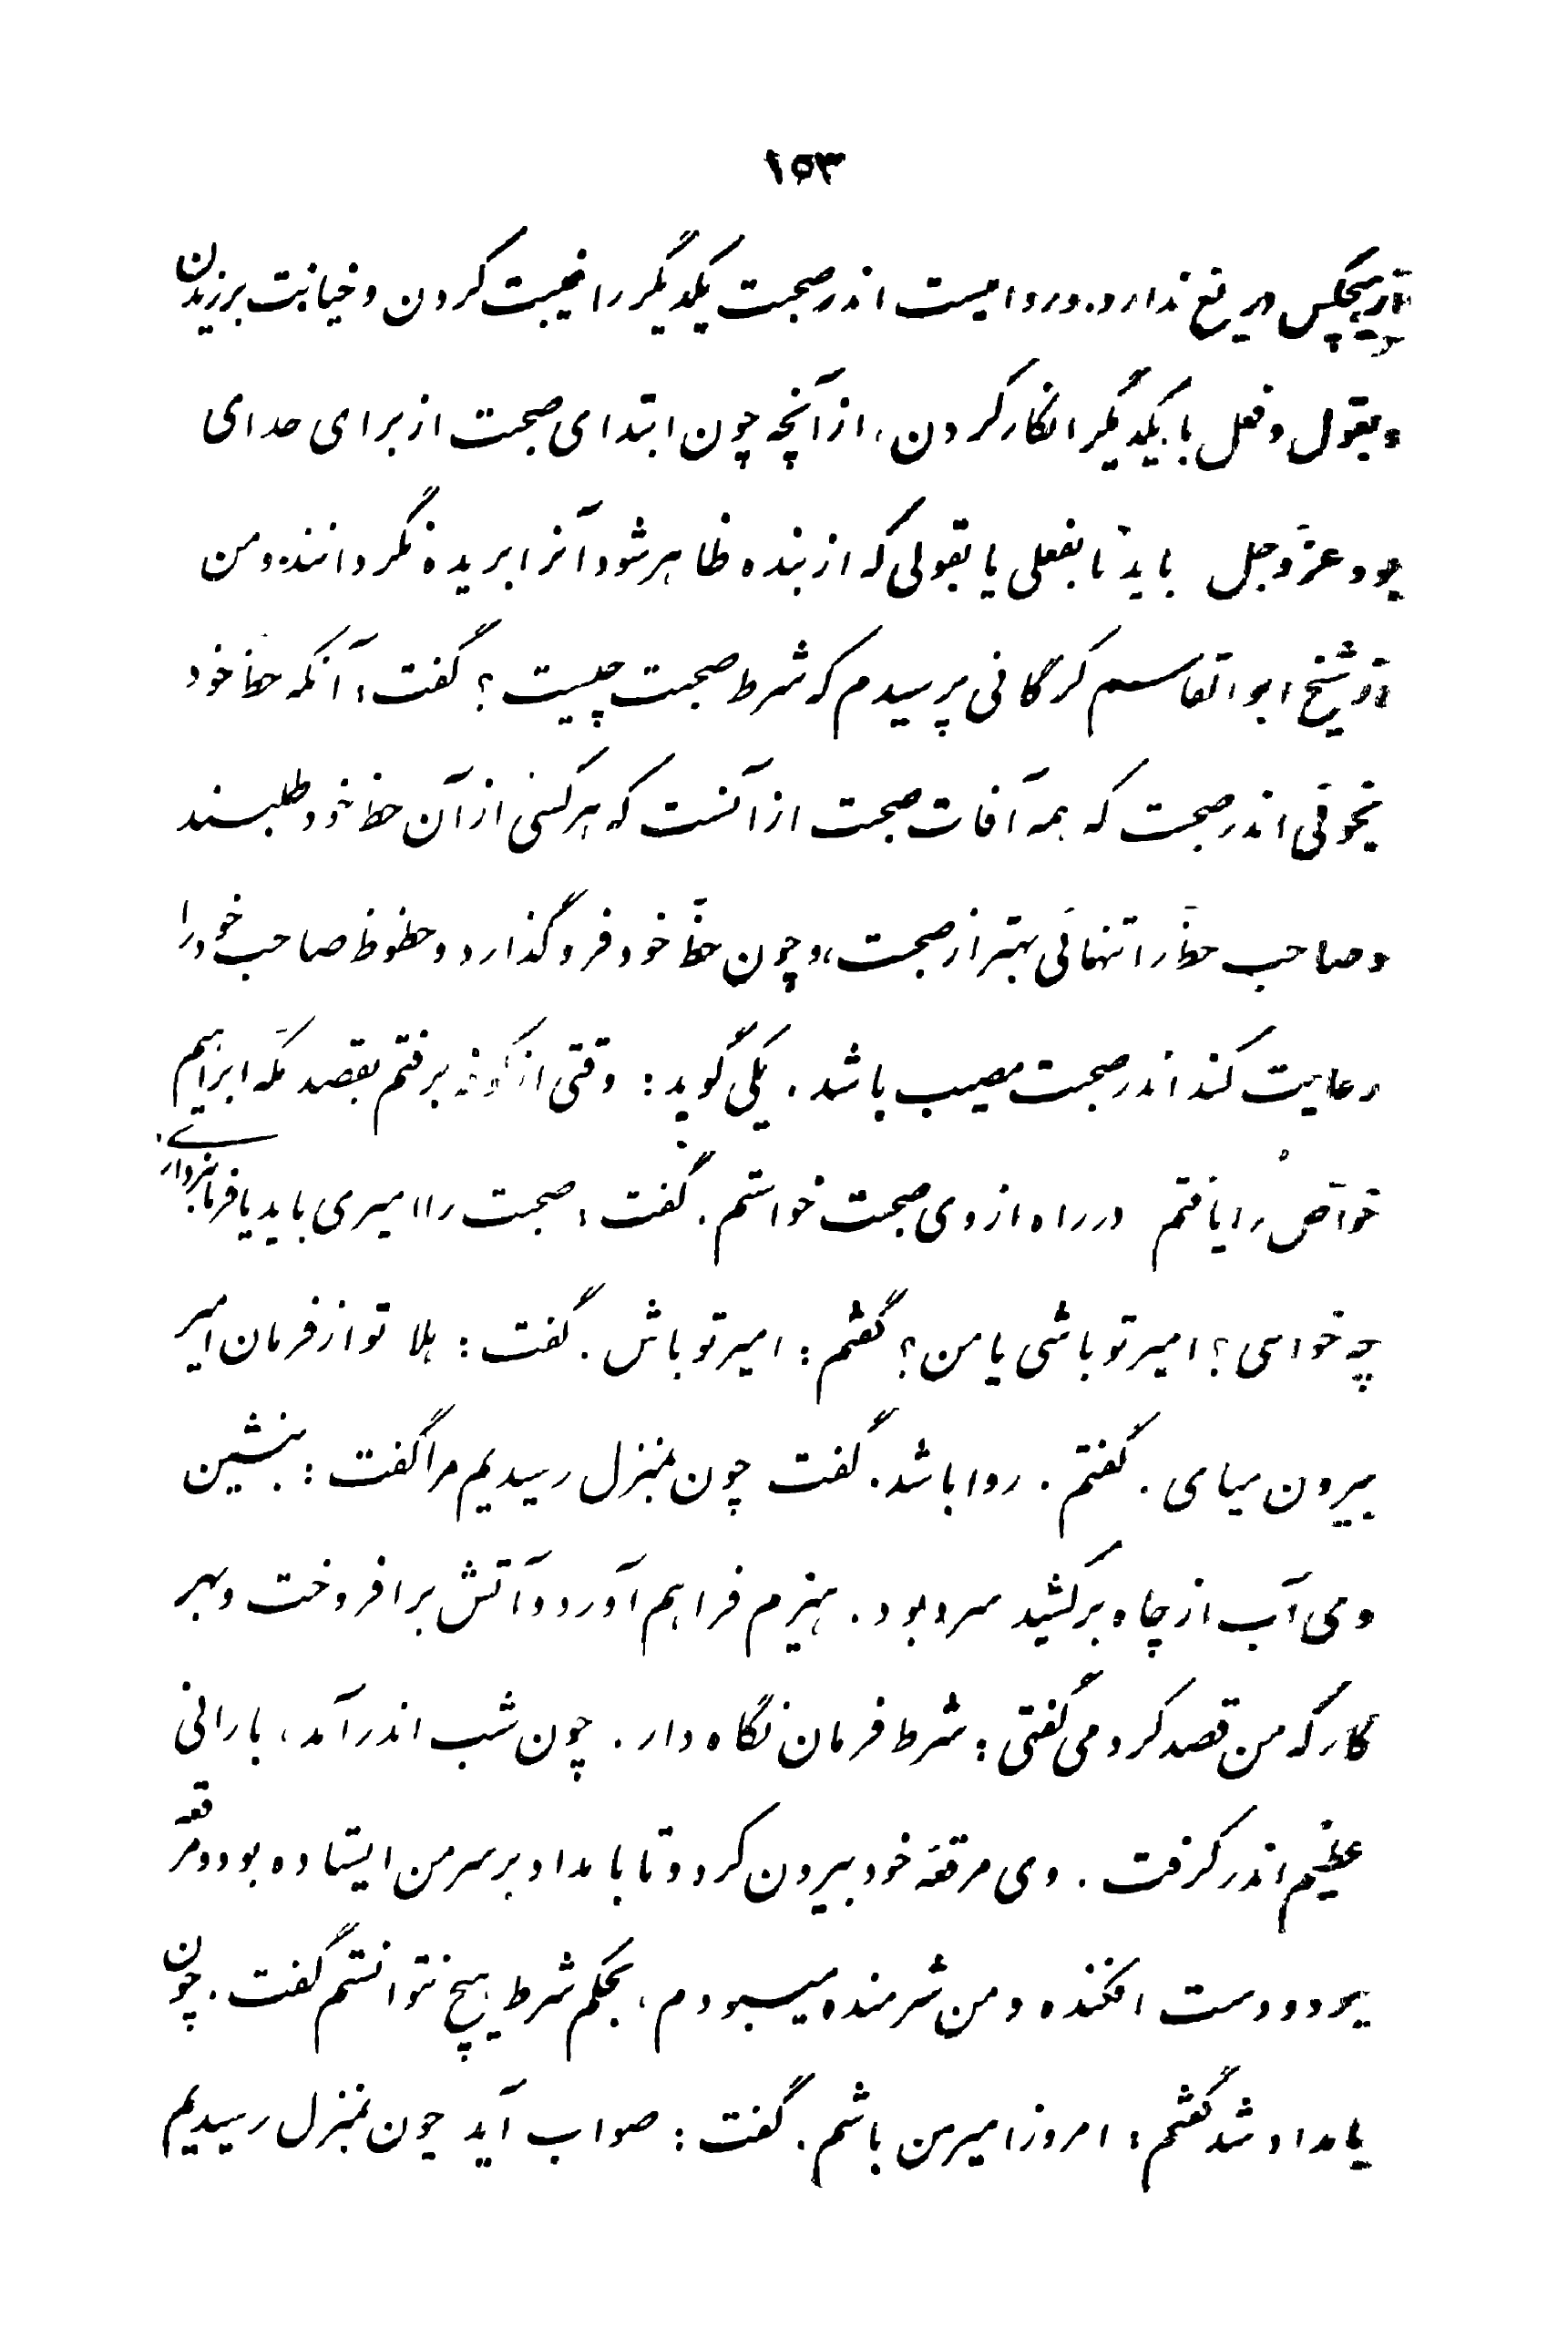 ١٥٣
از هیچکس دریغ ندارد. و روا نیست اندر صحبت یکدیگر را غیبت کردن و خیانت برزیدن
و بقول و فعل با یکدیگر انکار کردن، از آنچه چون ابتدای صحبت از برای خدای
بود عزّوجل باید تا بفعلی یا بقولی که از بنده ظاهر شود آنرا بریده نگردانند. و من
از شیخ ابوالقاسم کرگانی پرسیدم که شرط صحبت چیست؟ گفت: آنکه حظ خود
نجوئی اندر صحبت که همه آفات صحبت از آنست که هر کسی از آن حظ خود طلبند
و صاحب حظّ را تنهائی بهتر از صحبت، و چون حظّ خود فرو گذارد و حظوظ صاحب خود را
رعایت کند اندر صحبت مصیب باشد. یکی گوید: وقتی از کوفه برفتم بقصد مکّه ابراهیم
خوّاص را یافتم در راه از وی صحبت خواستم. گفت: صحبت را امیری باید یا فرمانبرداری.
چه خواهی؟ امیر تو باشی یا من؟ گفتم: امیر تو باش. گفت: هلا تو از فرمان امیر
بیرون میای. گفتم. روا باشد. گفت چون بمنزل رسیدیم مرا گفت: بنشین
وی آب از چاه برکشید سرد بود. هیزم فراهم آورد و آتش برافروخت و بهر
کار که من قصد کردمی گفتی: شرط فرمان نگاه دار. چون شب اندر آمد، بارانی
عظیم اندر گرفت. وی مرقعهٔ خود بیرون کرد و تا بامداد بر سر من ایستاده بود و مرقعه
بر دو دست افکنده و من شرمنده میبودم، بحکم شرط هیچ نتوانستم گفت. چون
بامداد شد گفتم: امروز امیر من باشم. گفت: صواب آید چون بمنزل رسیدیم